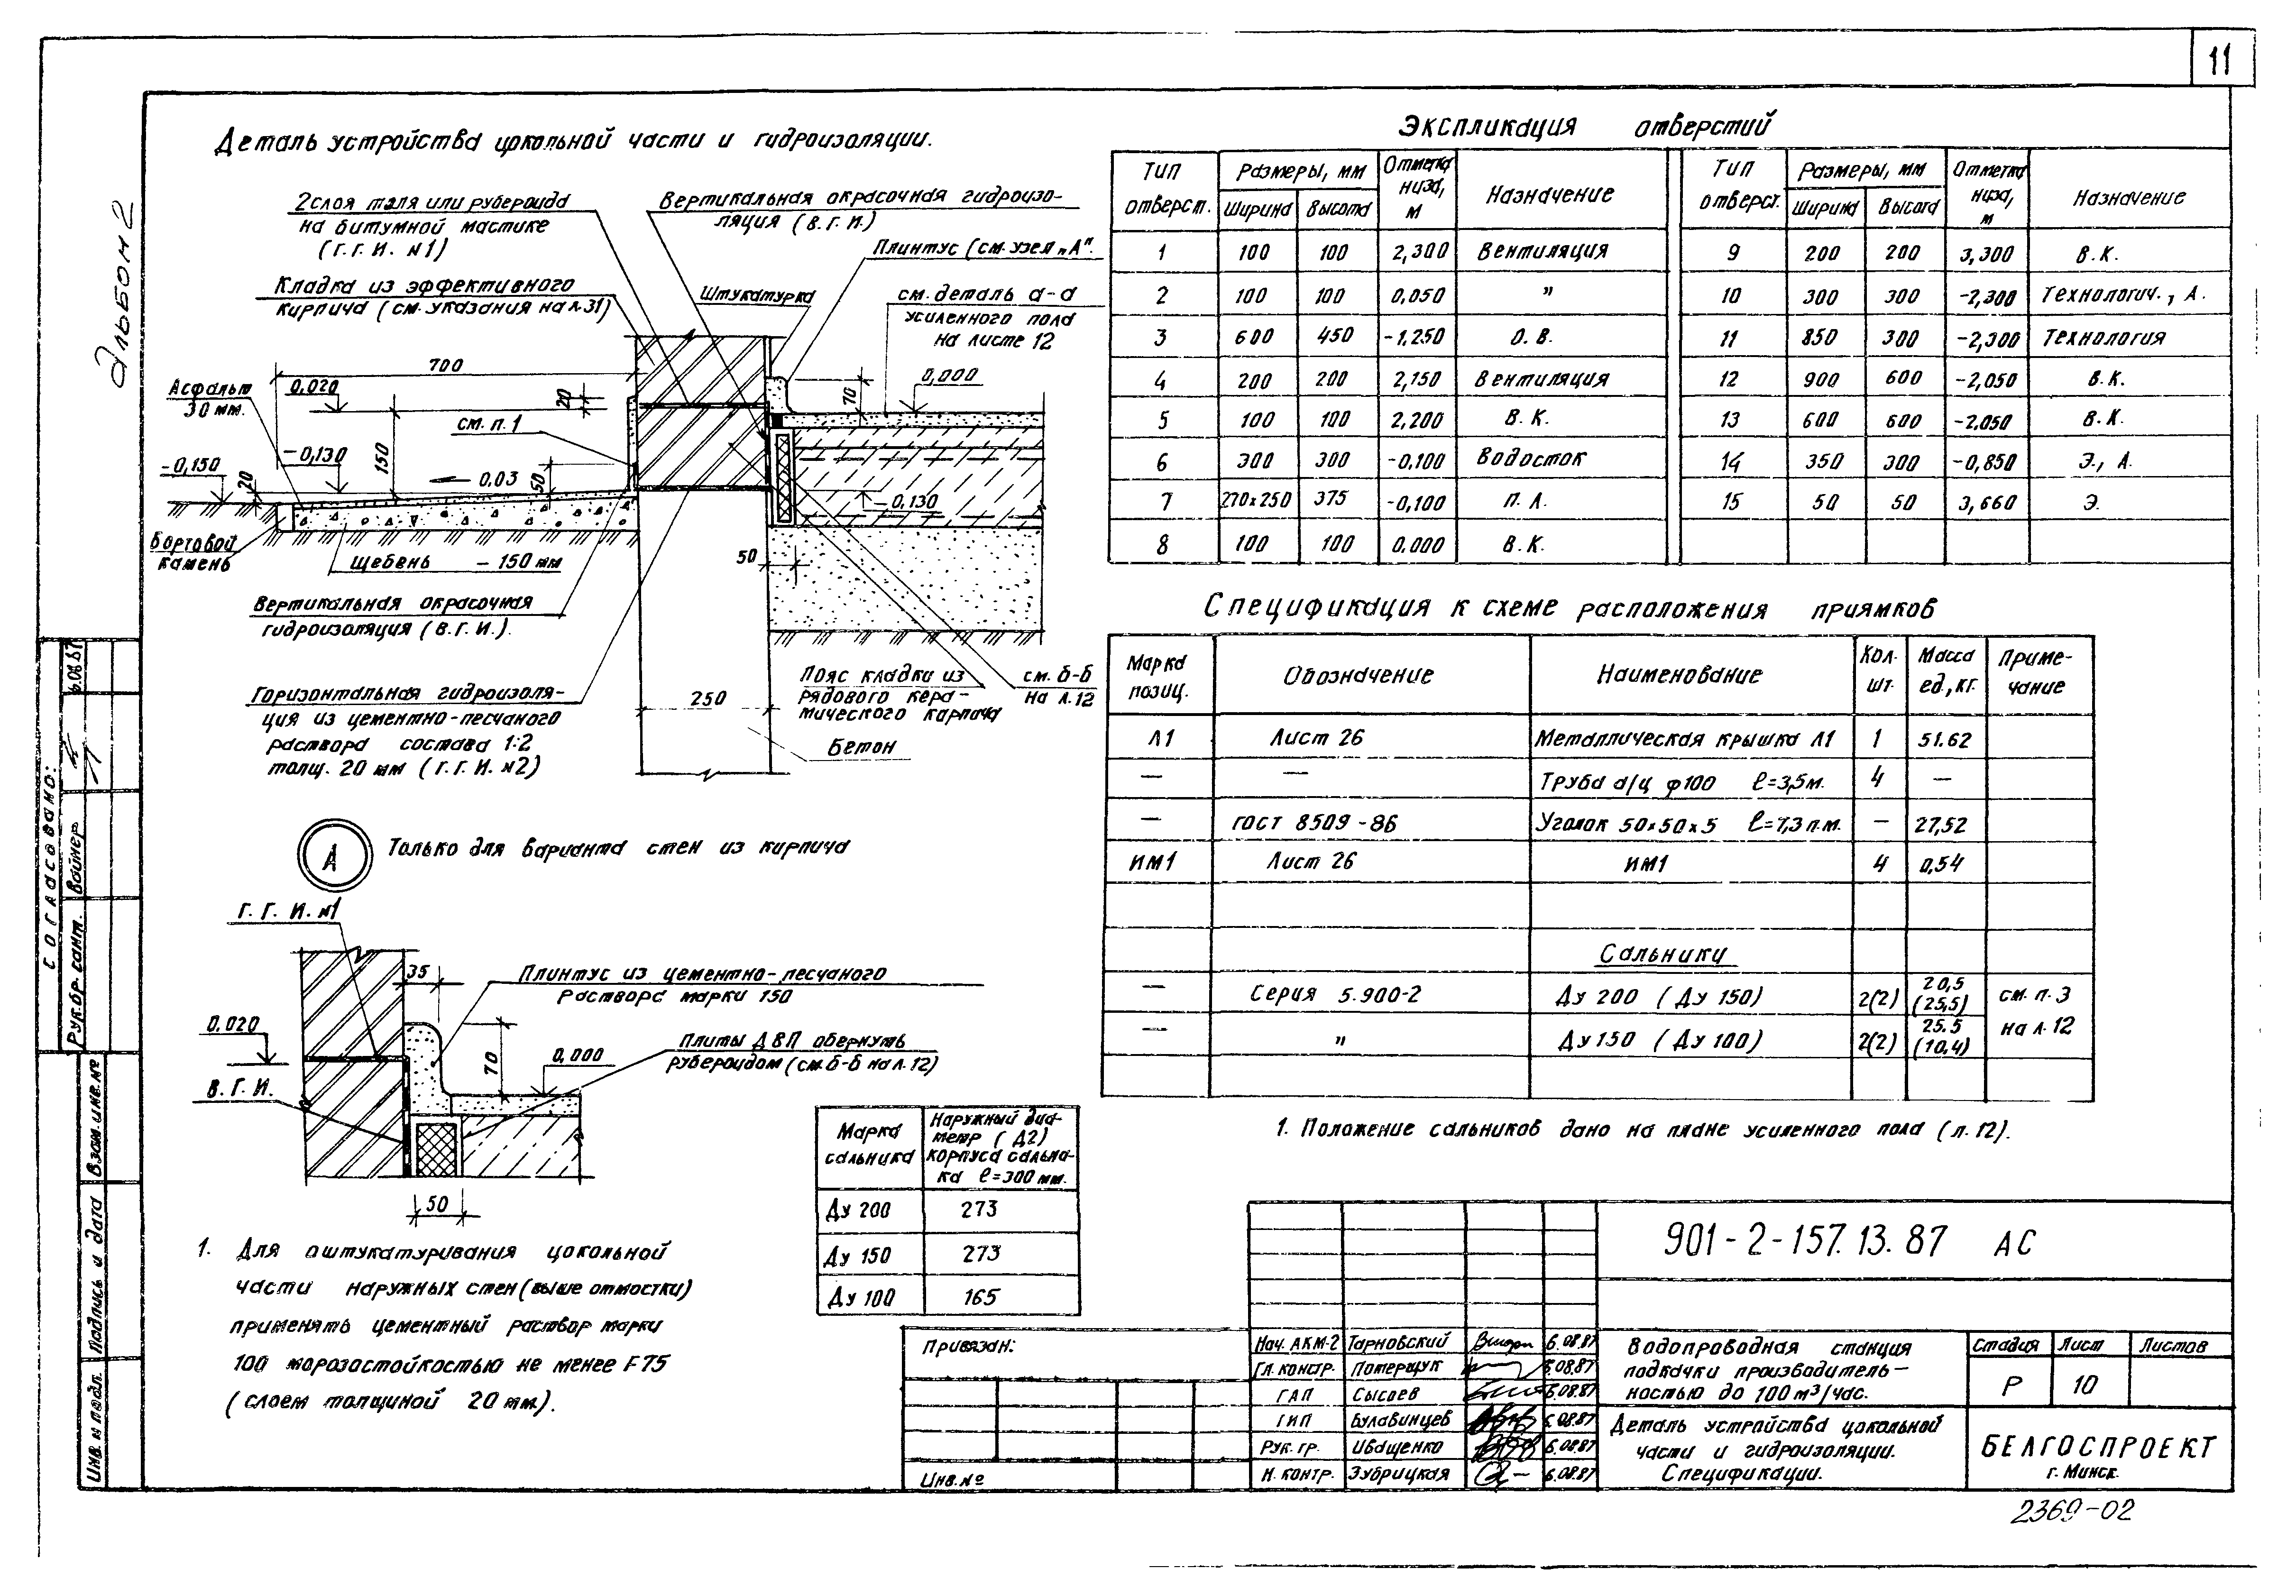 11
Альбом 2
Деталь устройства цокольной части и гидроизоляции.
2 слоя толя или рубероида
на битумной мастике
(Г.Г.И. №1)
Кладка из эффективного
кирпича (см. указания на л.31)
Вертикальная окрасочная гидроизо-
ляция (В.Г.И.)
Плинтус (см. узел „А".
Штукатурка
см. деталь а-а
усиленного пола
на листе 12
700
Асфальт
30 мм.
0.020
20
70
0,000
см. п. 1
150
-0,130
-0,150
20
0,03
50
-0,130
Бортовой
камень
Щебень - 150 мм
50
Вертикальная окрасочная
гидроизоляция (В.Г.И.).
Горизонтальная гидроизоля-
ция из цементно-песчаного
раствора состава 1:2
толщ. 20 мм (Г.Г.И. №2)
250
Пояс кладки из
рядового кера-
мического карпича
см. б-б
на л.12
Бетон
А
Только для варианта стен из кирпича
Г.Г.И. №1
35
Плинтус из цементно-песчаного
раствора марки 150
0.020
70
0,000
Плиты ДВП обернуть
рубероидом (см. б-б на л.12)
В.Г.И.
50
1. Для оштукатуривания цокольной
части наружных стен (выше отмостки)
применять цементный раствор марки
100 морозостойкостью не менее F75
(слоем толщиной 20 мм).
Марка сальника | Наружный диаметр (Д2) корпуса сальника ℓ=300 мм.
Ду 200 273
Ду 150 273
Ду 100 165
Экспликация отверстий
Тип отверст. | Размеры, мм | Ширина | Высота | Отметка низа, м | Назначение
1 100 100 2,300 Вентиляция
2 100 100 0,050 "
3 600 450 -1,250 О.В.
4 200 200 2,150 Вентиляция
5 100 100 2,200 В.К.
6 300 300 -0,100 Водосток
7 270х250 375 -0,100 П.А.
8 100 100 0.000 В.К.
Тип отверст. | Размеры, мм | Ширина | Высота | Отметка низа, м | Назначение
9 200 200 3,300 В.К.
10 300 300 -2,300 Технологич., А.
11 850 300 -2,300 Технология
12 900 600 -2,050 В.К.
13 600 600 -2,050 В.К.
14 350 300 -0,850 Э., А.
15 50 50 3,660 Э.
Спецификация к схеме расположения приямков
Марка позиц. | Обозначение | Наименование | Кол. шт. | Масса ед., кг. | Примечание
Л1 Лист 26 Металлическая крышка Л1 1 51.62
— — Труба а/ц φ100 ℓ=3,5м. 4 —
— ГОСТ 8509-86 Уголок 50х50х5 ℓ=7,3 п.м. — 27,52
ИМ1 Лист 26 ИМ1 4 0,54
Сальники
— Серия 5.900-2 Ду 200 (Ду 150) 2(2) 20,5 (25,5) см. п. 3
— " Ду 150 (Ду 100) 2(2) 25.5 (10,4) на л. 12
1. Положение сальников дано на плане усиленного пола (л. 12).
901-2-157.13.87 АС
Привязан:
Инв. №
Нач. АКМ-2 Тарновский 6.08.87
Гл. констр. Потерщук 6.08.87
ГАП Сысоев 6.08.87
ГИП Булавинцев 6.08.87
Рук. гр. Иващенко 6.08.87
Н. контр. Зубрицкая 6.08.87
Водопроводная станция
подкачки производитель-
ностью до 100 м³/час.
Стадия Лист Листов
Р 10
Деталь устройства цокольной
части и гидроизоляции.
Спецификации.
БЕЛГОСПРОЕКТ
г. Минск.
2369-02
Согласовано:
Рук. бр. сант. Вайнер 6.08.87
Взам. инв. №
Подпись и дата
Инв. № подл.